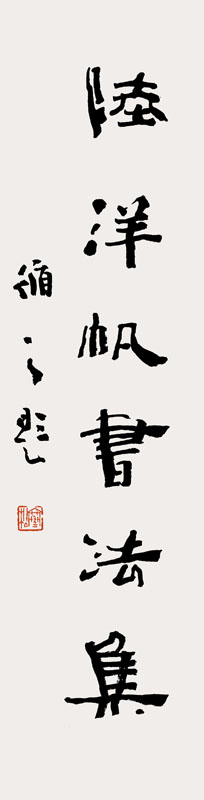 陸洋帆書法集
循之題